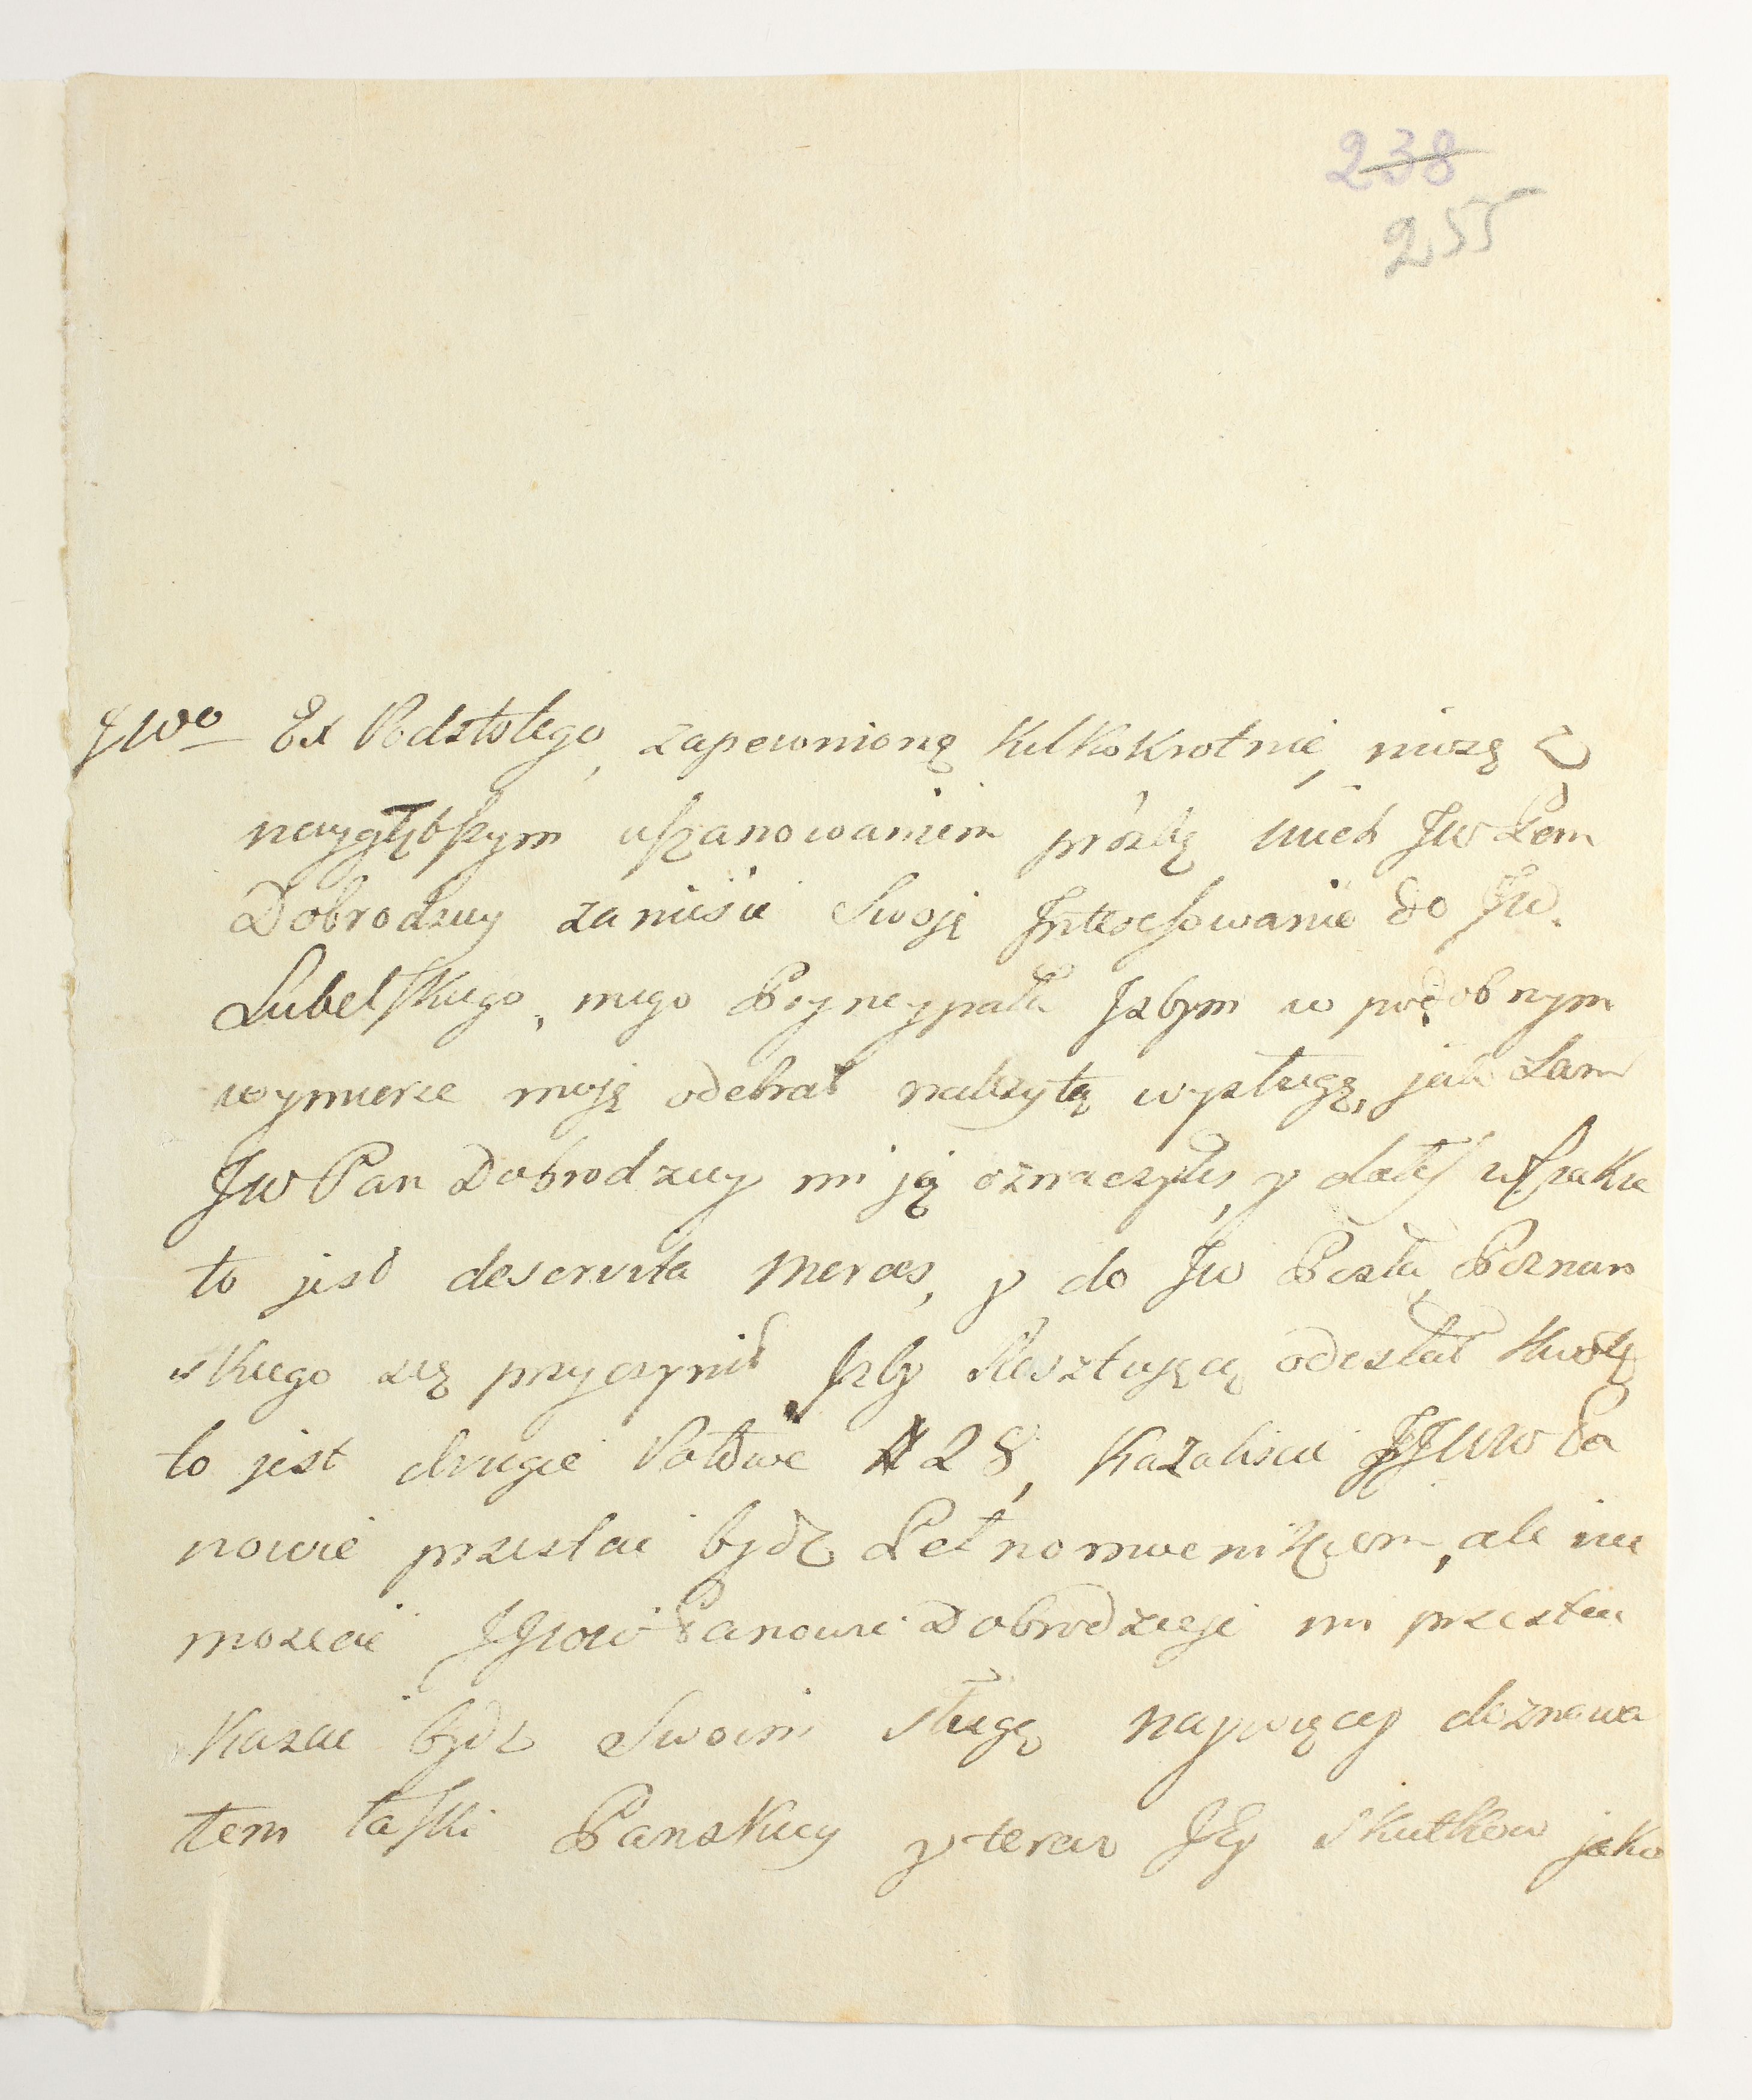 238
255
JWo Ex Podstolego, zapewnioną kilkokrotnie, niosę z
naygłębszym uszanowaniem prożbę niech JW Pan
Dobrodziey zaniesie Swoję Interessowanie do JW.
Lubelskiego, mego Pryncypała Jzbym w podobnym
wymierze moję odebrał należytą wysługę, jak Sam
JW Pan Dobrodziey mi ją oznaczyłeś, y dałeś wszakże
to jest deservita merces, y do JW Posła Poznan
skiego się przyczynił Jzby Resztującą odesłał kwotę
to jest drugie Połowe # 28, Kazaliscie JJWW Pa
nowie przestać bydz Pełnomocnikiem, ale nie
możecie JJWW Panowie Dobrodzieje mi przestać
Kazać bydz Swoim sługą naywięcey doznawa
łem łaski Panskiey y teraz Jey skutkow jako